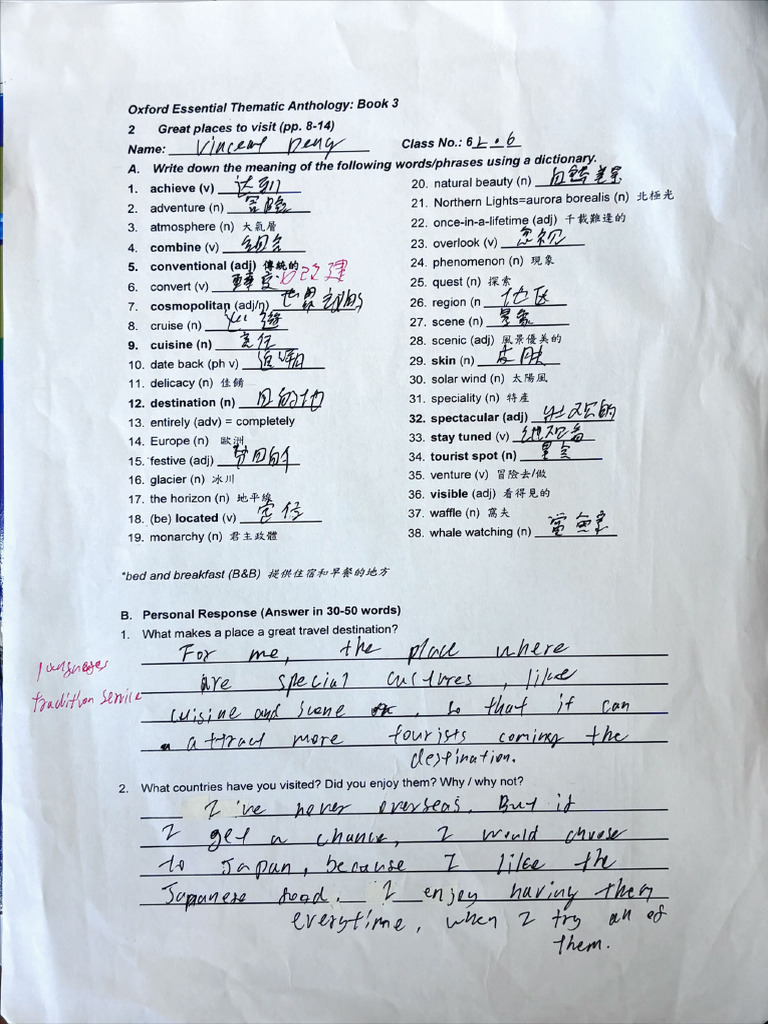 Oxford Essential Thematic Anthology: Book 3
2 Great places to visit (pp. 8-14)
Name: Vincent Peng Class No.: 6
A. Write down the meaning of the following words/phrases using a dictionary.
1. achieve (v) 达到
2. adventure (n) 冒险
3. atmosphere (n) 大氣層
4. combine (v) 組合
5. conventional (adj) 傳統的
6. convert (v) 改建
7. cosmopolitan (adj/n) 世界
8. cruise (n)
9. cuisine (n) 烹饪
10. date back (ph v) 追溯
11. delicacy (n) 佳餚
12. destination (n) 目的地
13. entirely (adv) = completely
14. Europe (n) 歐洲
15. festive (adj)
16. glacier (n) 冰川
17. the horizon (n) 地平線
18. (be) located (v)
19. monarchy (n) 君主政體
20. natural beauty (n) 自然美景
21. Northern Lights=aurora borealis (n) 北極光
22. once-in-a-lifetime (adj) 千載難逢的
23. overlook (v) 忽视
24. phenomenon (n) 現象
25. quest (n) 探索
26. region (n) 地区
27. scene (n) 景象
28. scenic (adj) 風景優美的
29. skin (n) 皮肤
30. solar wind (n) 太陽風
31. speciality (n) 特產
32. spectacular (adj) 壮观的
33. stay tuned (v)
34. tourist spot (n)
35. venture (v) 冒險去/做
36. visible (adj) 看得見的
37. waffle (n) 窩夫
38. whale watching (n)
*bed and breakfast (B&B) 提供住宿和早餐的地方
B. Personal Response (Answer in 30-50 words)
1. What makes a place a great travel destination?
For me, the place where
languages
are special cultures, like
tradition service
cuisine and scene, so that it can
attract more tourists coming the
destination.
2. What countries have you visited? Did you enjoy them? Why / why not?
I've never overseas. But if
I get a chance, I would choose
to Japan, because I like the
Japanese food. I enjoy having them
everytime, when I try an of
them.